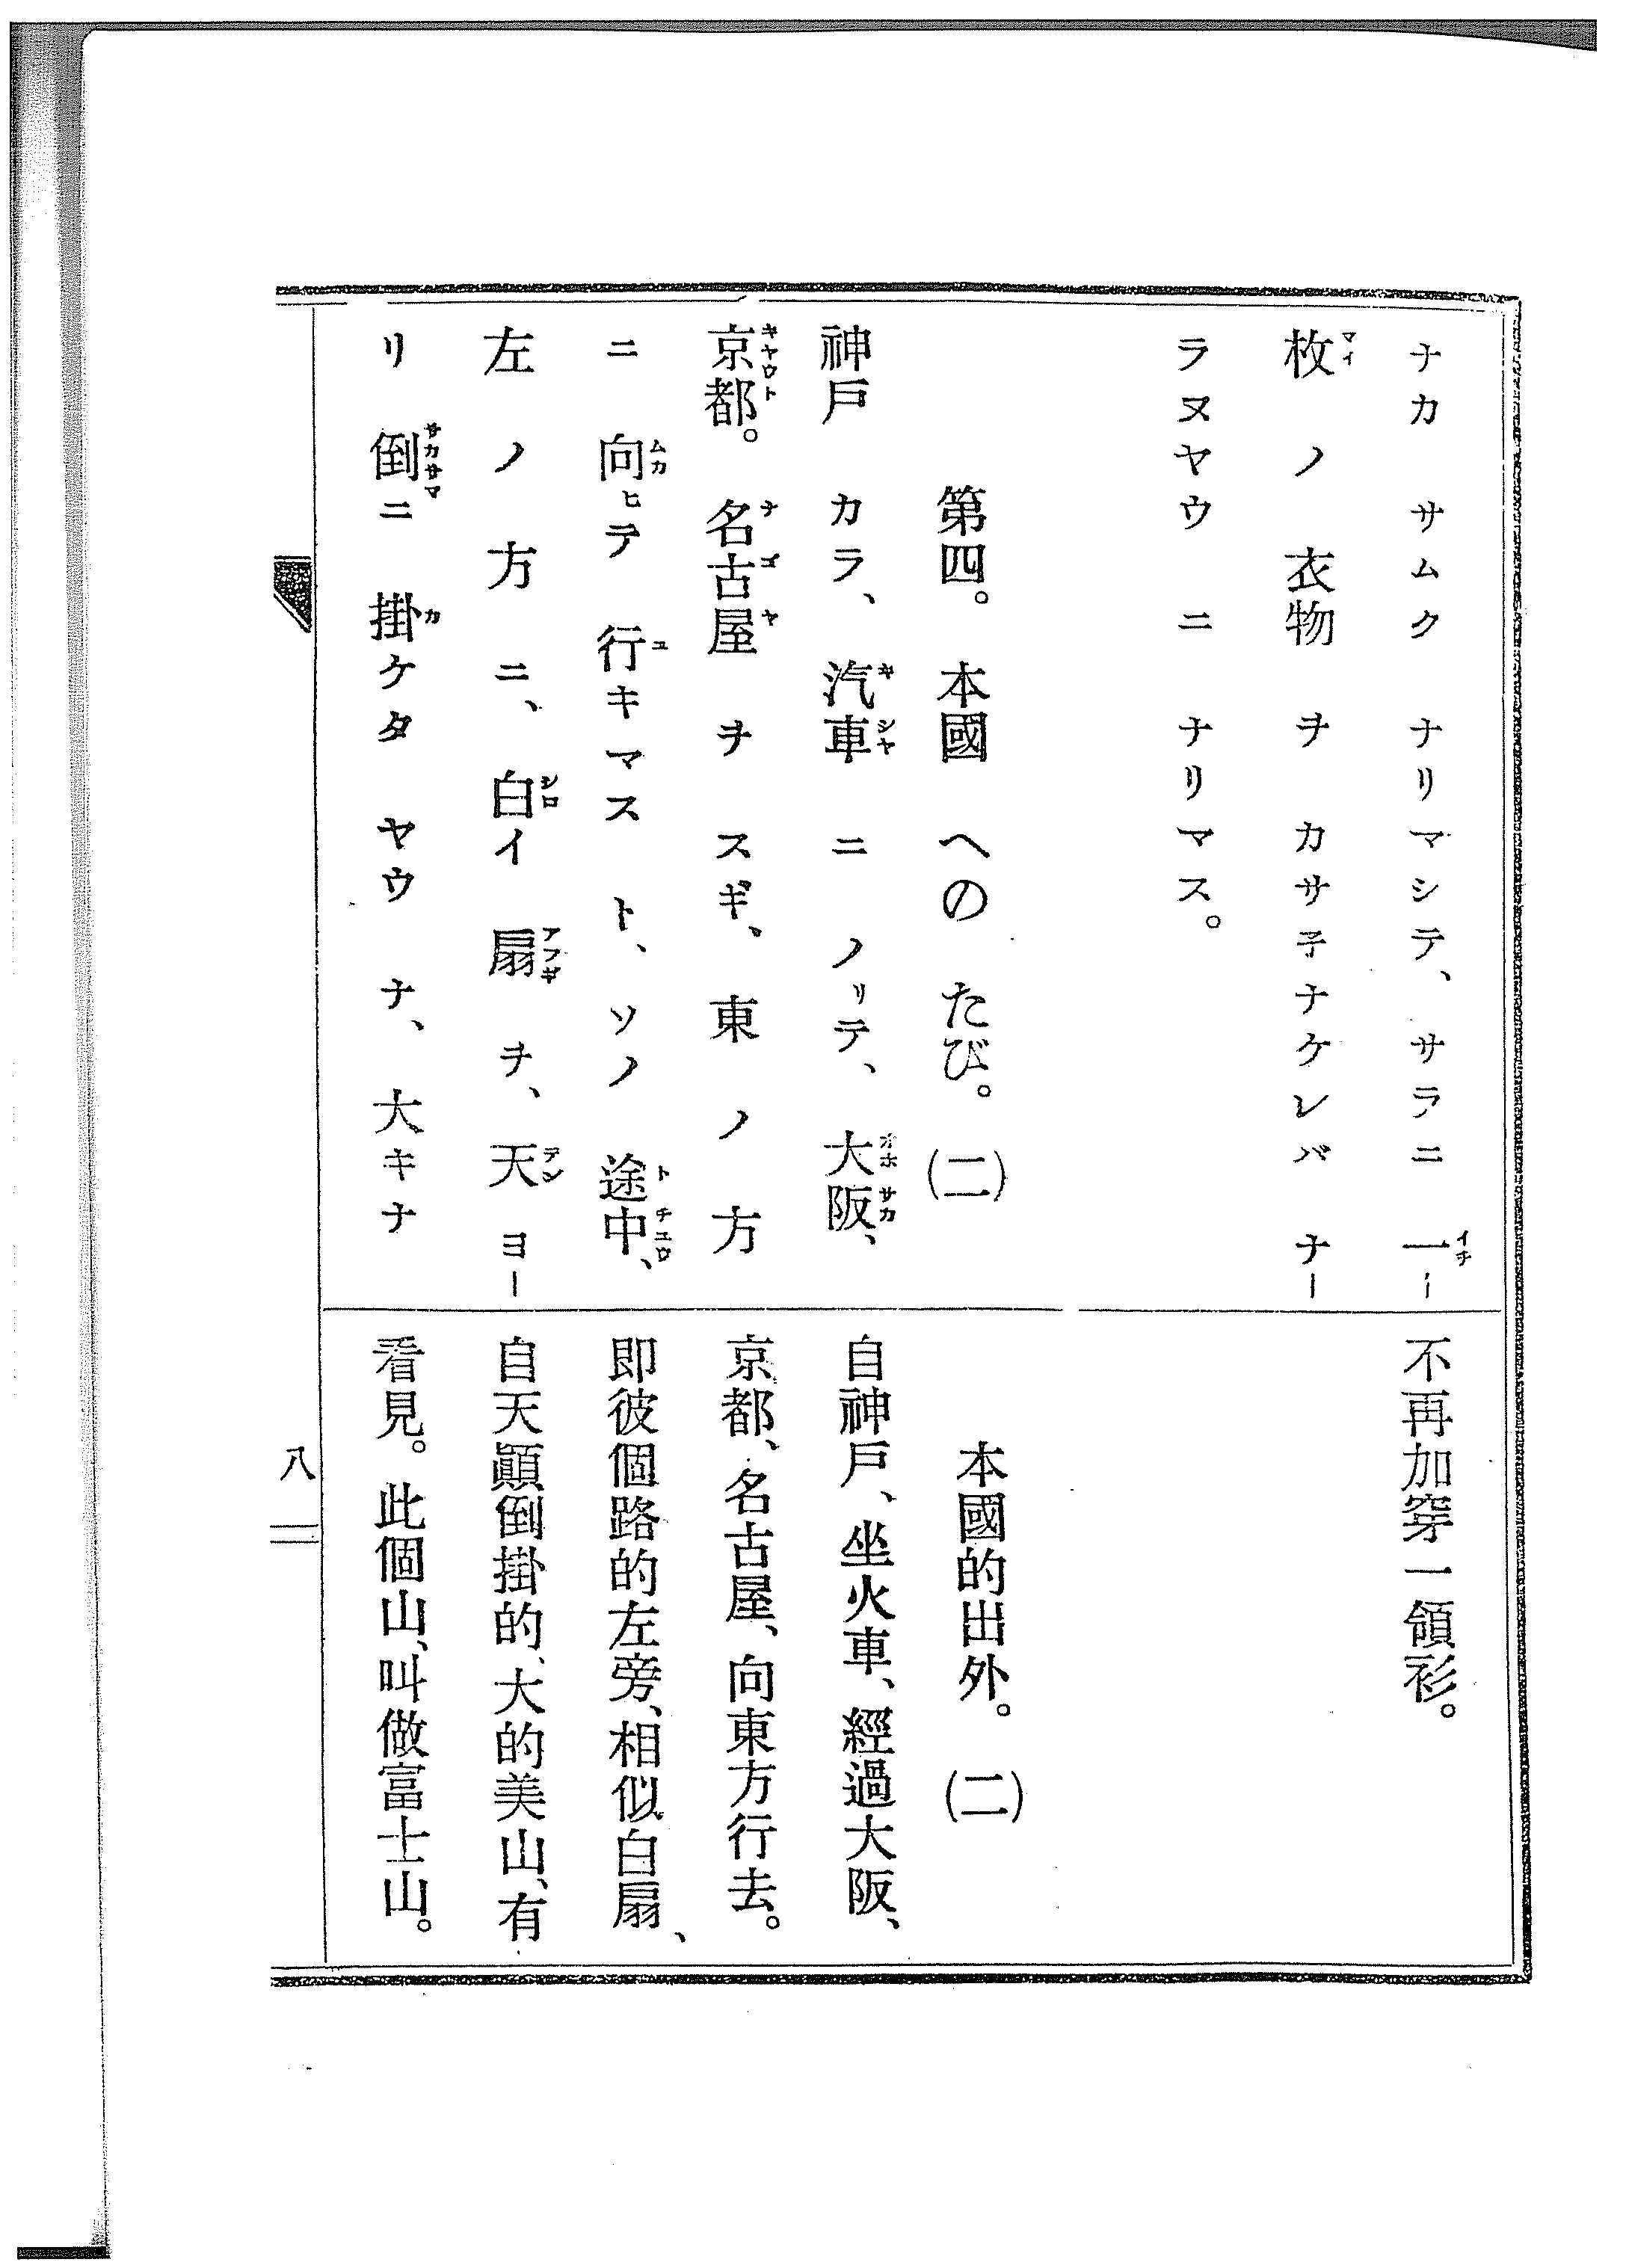 ナカ サムク ナリマシテ、サラニ 一ー
枚 ノ 衣物 ヲ カサ子ナケレバ ナー
ラヌヤウ ニ ナリマス。
第四。 本國 への たび。 (二)
神戶 カラ、 汽車 ニ ノリテ、 大阪、
京都。 名古屋 ヲ スギ、 東 ノ 方
ニ 向ヒテ 行キマス ト、ソノ 途中、
左ノ方 ニ、 白イ 扇 ヲ、 天 ヨー
リ 倒ニ 掛ケタ ヤウ ナ、 大キナ
不再加穿一領衫。
本國的出外。 (二)
自神戶、坐火車、經過大阪、
京都、名古屋、向東方行去。
即彼個路的左旁、相似白扇、
自天顚倒掛的、大的美山、有
看見。此個山、叫做富士山。
八